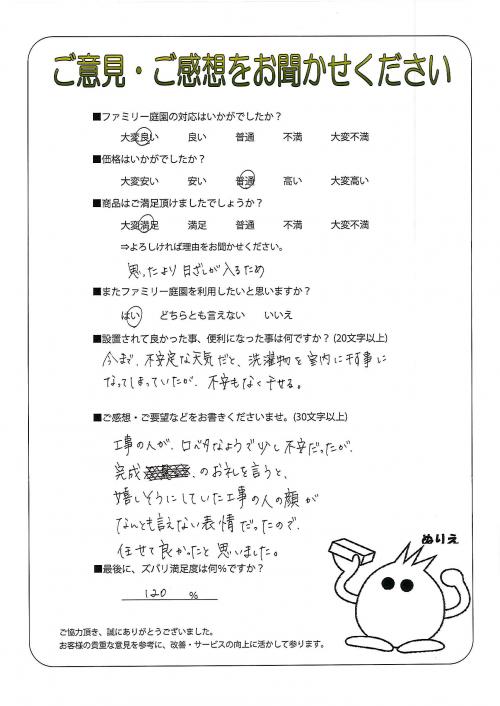 ご意見・ご感想をお聞かせください
■ファミリー庭園の対応はいかがでしたか？
大変良い 良い 普通 不満 大変不満
■価格はいかがでしたか？
大変安い 安い 普通 高い 大変高い
■商品はご満足頂けましたでしょうか？
大変満足 満足 普通 不満 大変不満
⇒よろしければ理由をお聞かせください。
思ったより日ざしが入るため
■またファミリー庭園を利用したいと思いますか？
はい どちらとも言えない いいえ
■設置されて良かった事、便利になった事は何ですか？(20文字以上)
今まで、不安定な天気だと、洗濯物を室内に干す事に
なってしまっていたが、不安もなく干せる。
■ご感想・ご要望などをお書きくださいませ。(30文字以上)
工事の人が、口ベタなようで少し不安だったが、
完成 のお礼を言うと、
嬉しそうにしていた工事の人の顔が
なんとも言えない表情だったので、
任せて良かったと思いました。
■最後に、ズバリ満足度は何％ですか？
120 %
ぬりえ
ご協力頂き、誠にありがとうございました。
お客様の貴重な意見を参考に、改善・サービスの向上に活かして参ります。